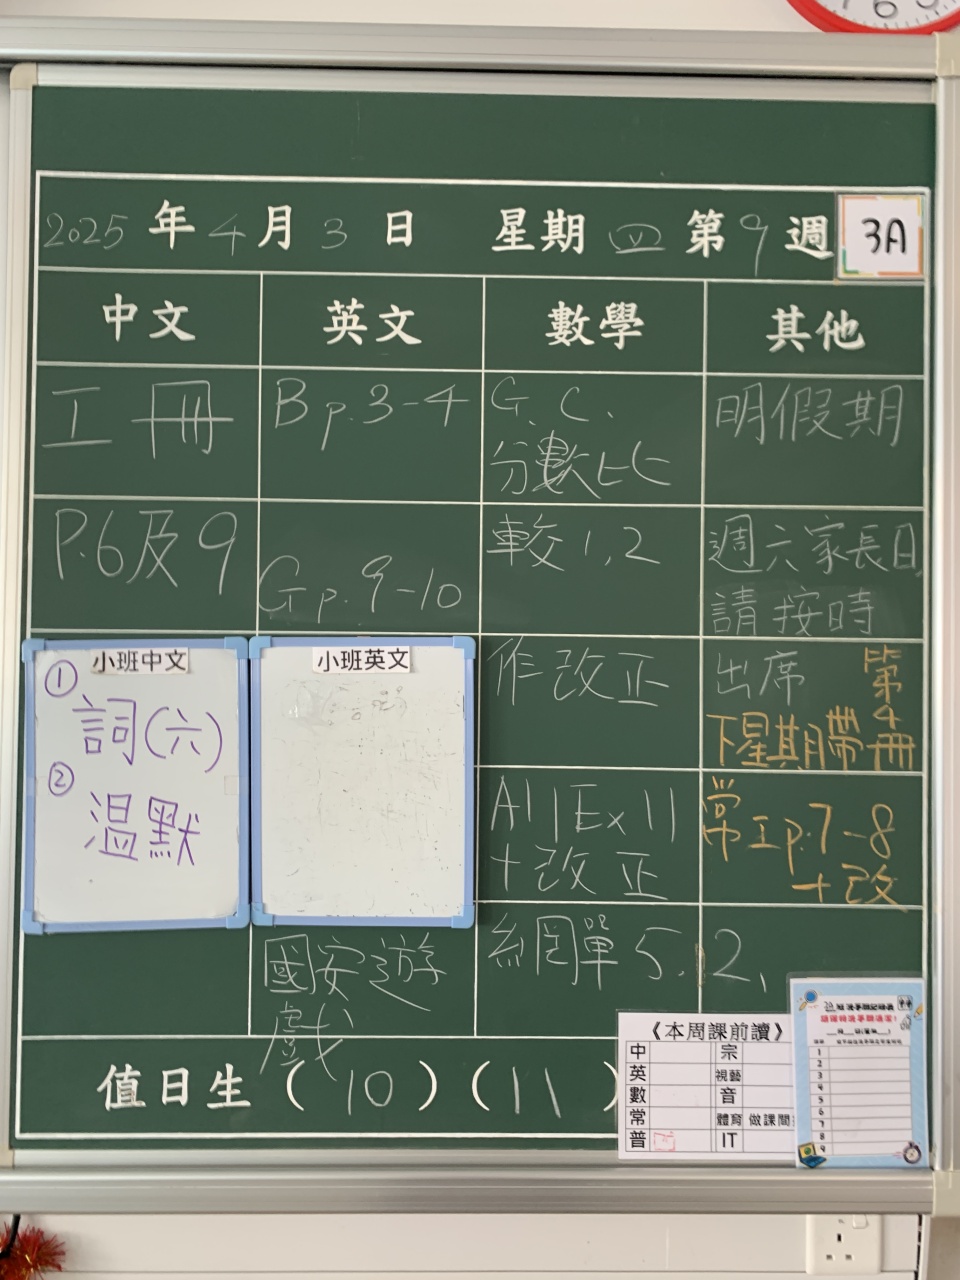 2025 年 4 月 3 日 星期 四 第 9 週
3A
中文
英文
數學
其他
工冊
P.6及9
小班中文
① 詞(六)
② 溫默
B p.3-4
G p.9-10
小班英文
國安遊
戲
G.C.
分數比
較 1,2
作改正
A11Ex11
+改正
網單 5.12.
明假期
週六家長日
請按時
出席
下星期帶
第4冊
常工p.7-8
+改
值日生 ( 10 ) ( 11 )
《本周課前讀》
中 宗
英 視藝
數 音
常 體育 做課間
普 IT
1
2
3
4
5
6
7
8
9